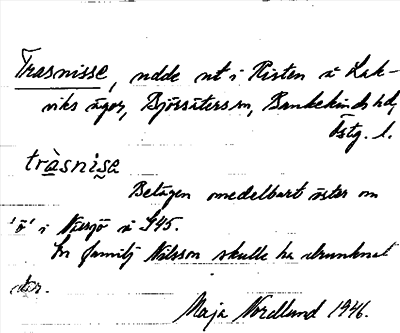 Trasnisse, udde ut i Risten å Lak-
viks ägor, Björsäters sn, Bankekinds hd,
Östg. l.
tràsnisa
Belägen omedelbart öster om
'ö' i Närsjö å 945.
En familj Nilsson skulle ha drunknat
där.
Maja Nordlund 1946.